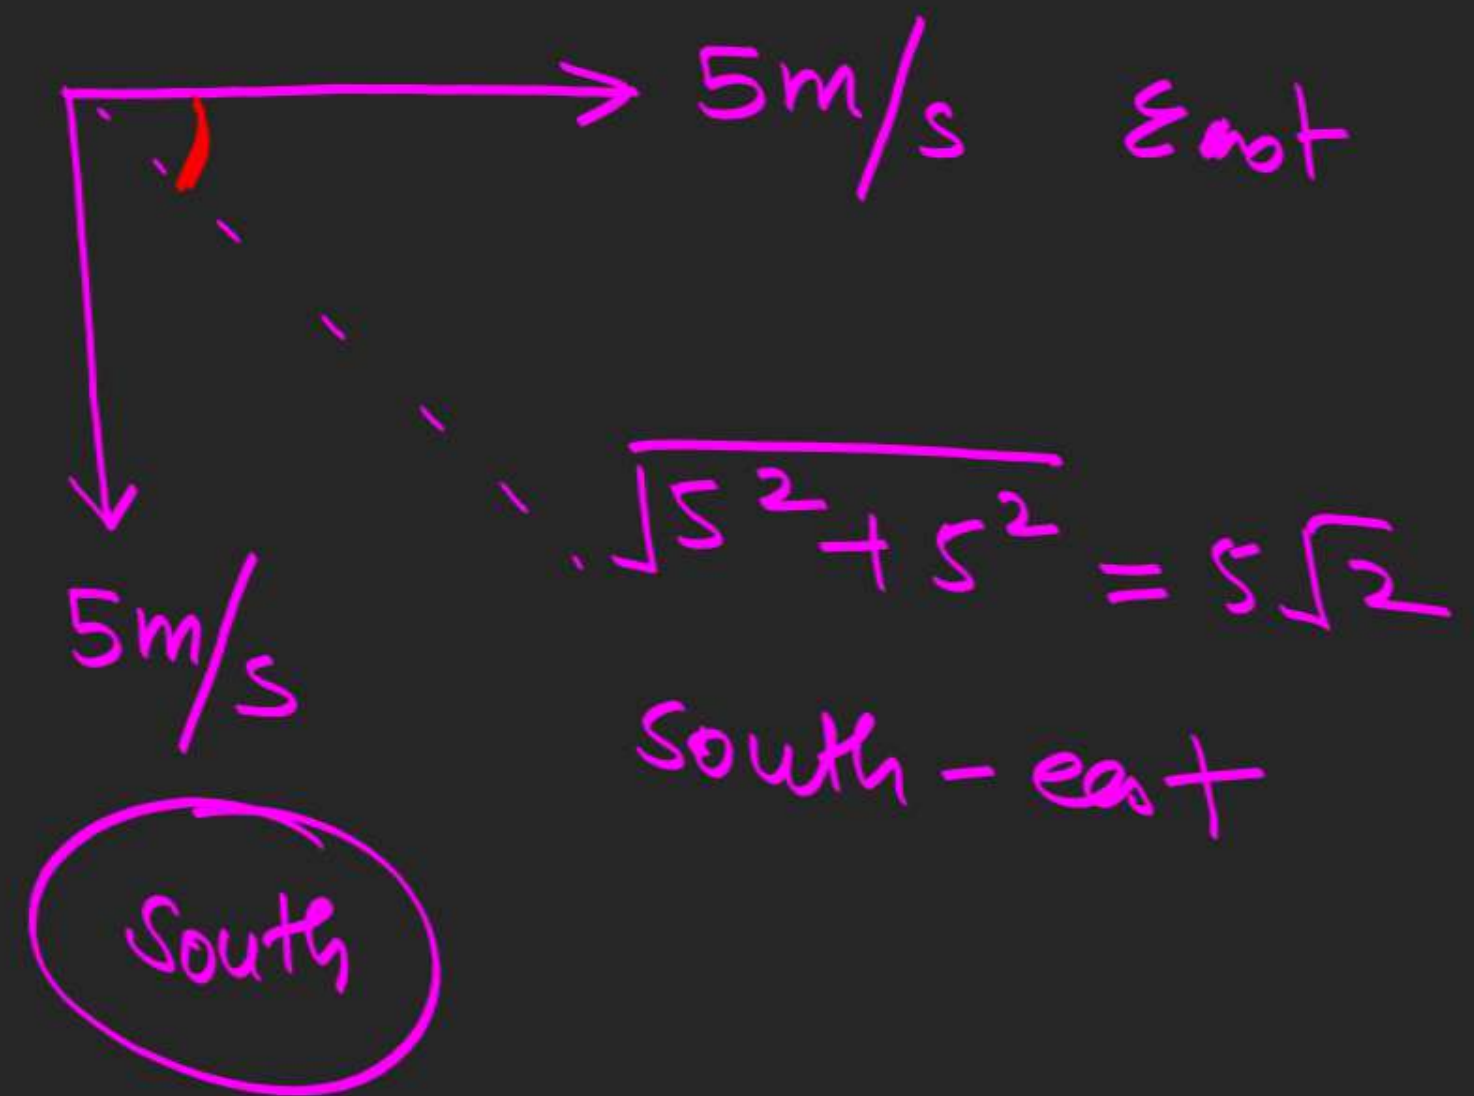 5m/s East
√5² + 5² = 5√2
5m/s
south - east
South